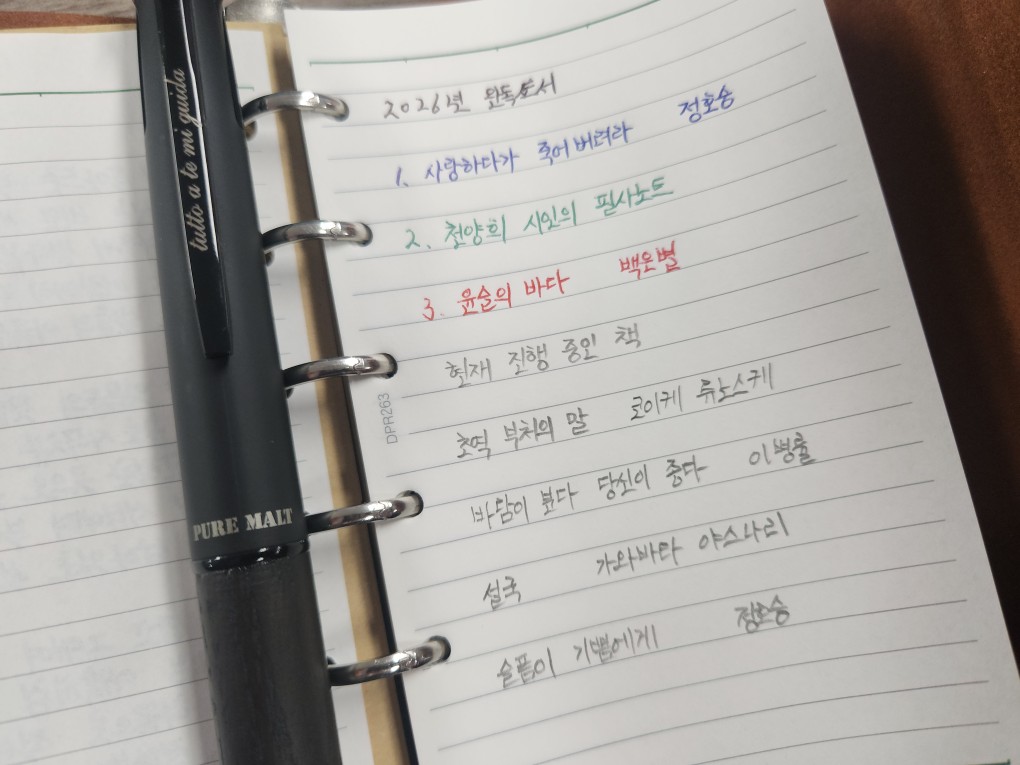 tutto a te mi guida
PURE MALT
DPR263
2026년 완독도서
1. 사랑하다가 죽어버려라 정호승
2. 천양희 시인의 필사노트
3. 윤슬의 바다 백은별
현재 진행 중인 책
초역 부처의 말 코이케 류노스케
바람이 분다 당신이 좋다 이병률
설국 가와바타 야스나리
슬픔이 기쁨에게 정호승